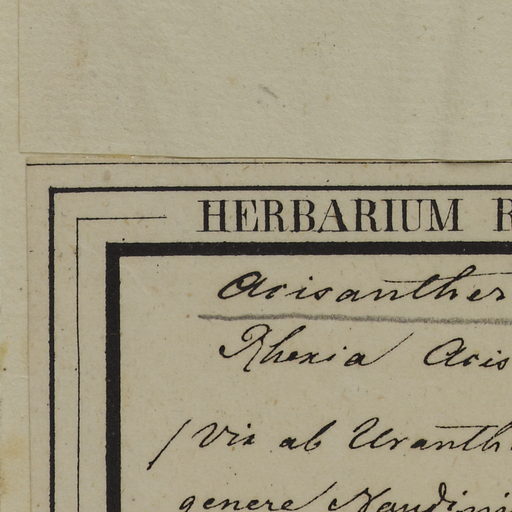 HERBARIUM R
Acisanther
Rhexia Acis
/ Vix ab Uranth
genere Naudini